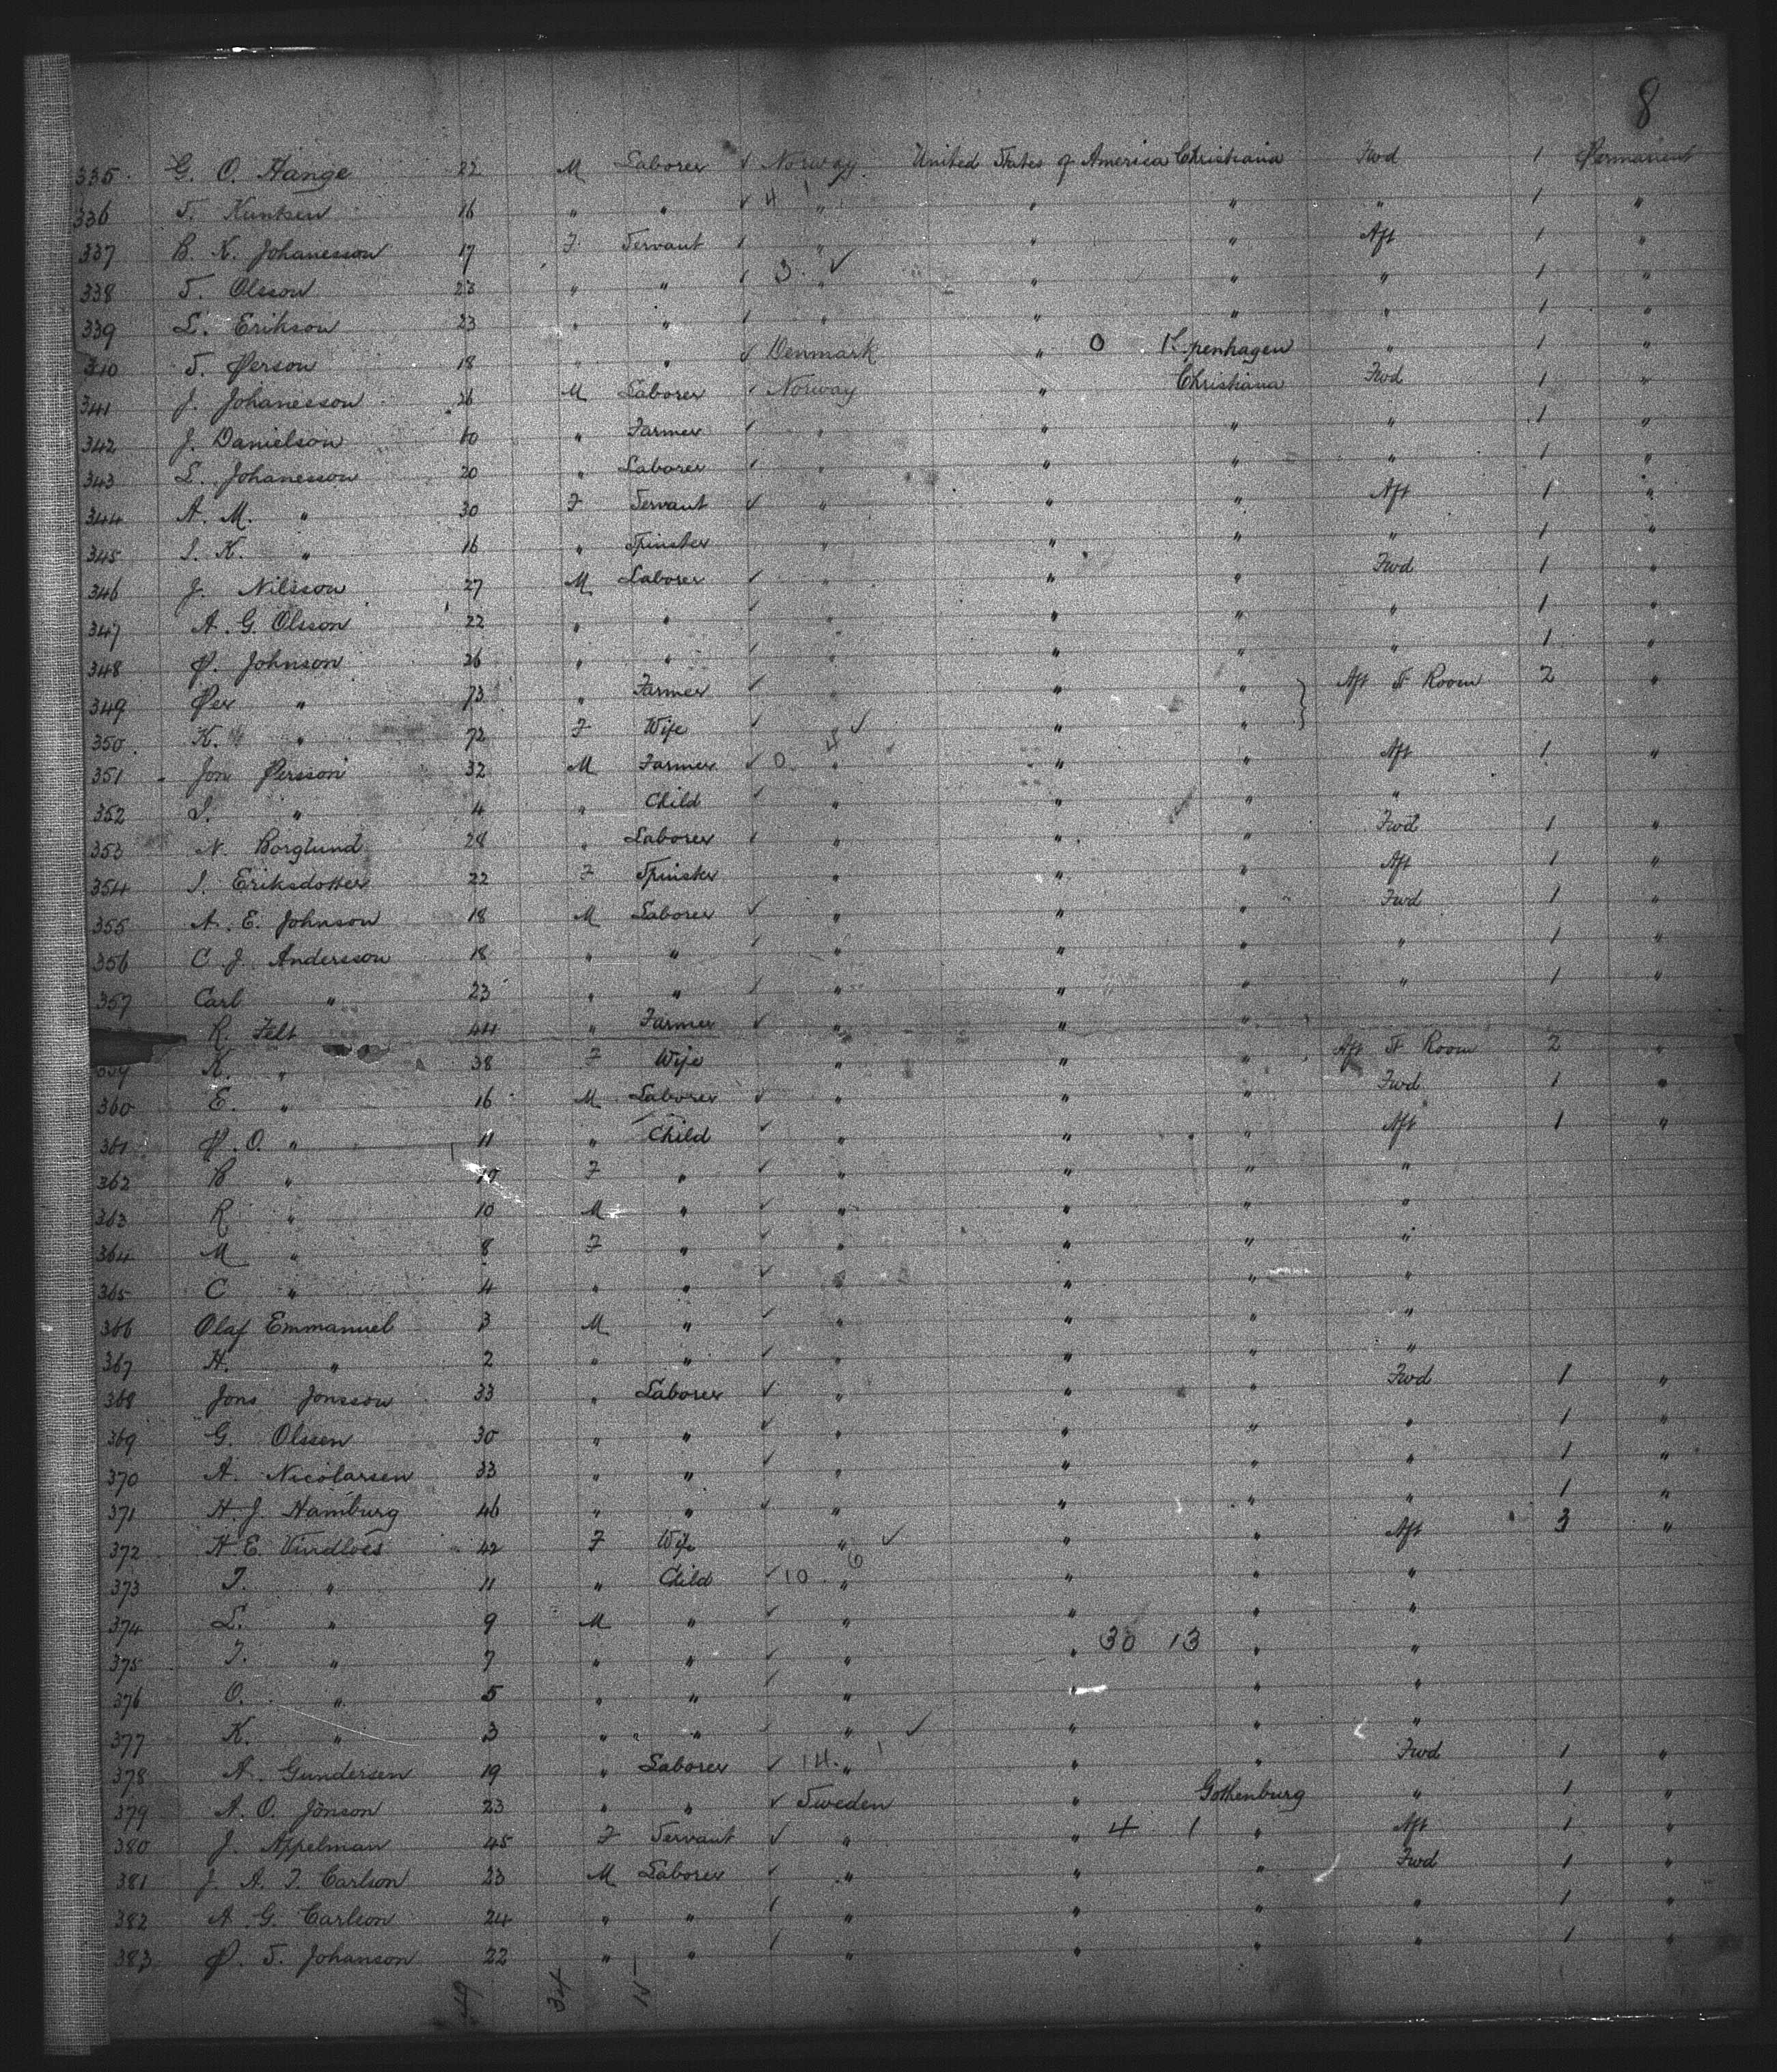 8
335 G. O. Hange 22 M Laborer ✓ Norway United States of America Christiana Fwd 1 Permanent
336 T. Kuntsen 16 " " ✓ 4 1 " " " " 1 "
337 B. K. Johanesson 17 F Servant ✓ " " " Aft 1 "
338 T. Olsson 23 " " ✓ 3 " ✓ " " " 1 "
339 L. Erikson 23 " " ✓ " " " " 1 "
340 T. Person 18 " " ✓ Denmark " 0 Kopenhagen " 1 "
341 J. Johanesson 26 M Laborer ✓ Norway " Christiana Fwd 1 "
342 J. Danielson 60 " Farmer ✓ " " " " 1 "
343 L. Johanesson 20 " Laborer ✓ " " " " 1 "
344 A. M. " 30 F Servant ✓ " " " Aft 1 "
345 I. K. " 16 " Spinster " " " " 1 "
346 J. Nilsson 27 M Laborer ✓ " " " Fwd 1 "
347 A. G. Olsson 22 " " ✓ " " " " 1 "
348 P. Johnson 26 " " ✓ " " " " 1 "
349 Per " 73 " Farmer ✓ " " " } Aft St Room 2 "
350 K. " 72 F Wife ✓ " ✓ " "
351 Jon Persson 32 M Farmer ✓ 0 4 " " " Aft 1 "
352 S. " 4 " Child ✓ " " " "
353 N. Borglund 28 " Laborer ✓ " " " Fwd 1 "
354 I. Eriksdotter 22 F Spinster " " " Aft 1 "
355 A. E. Johnson 18 M Laborer ✓ " " " Fwd 1 "
356 C. J. Andersson 18 " " ✓ " " " " 1 "
357 Carl " 23 " " ✓ " " " " 1 "
R. Felt 44 " Farmer ✓ " " "
359 K. " 38 F Wife " " " Aft St Room 2 "
360 E. " 16 M Laborer ✓ " " " Fwd 1 "
361 P. O. " 11 " Child ✓ " " " Aft 1 "
362 B " F " ✓ " " " "
363 R " 10 M " ✓ " " " "
364 M " 8 F " ✓ " " " "
365 C " 4 " " ✓ " " " "
366 Olaf Emmanuel 3 M " ✓ " " " "
367 H. " 2 " " ✓ " " " "
368 Jons Jonsson 33 " Laborer ✓ " " " Fwd 1 "
369 G. Olssen 30 " " ✓ " " " " 1 "
370 A. Nicolarsen 33 " " ✓ " " " " 1 "
371 H. J. Hamburg 46 " " ✓ " " " " 1 "
372 H. E. Vindloes 42 F Wife " ✓ " " Aft 3 "
373 T. " 11 " Child ✓ 10 6 " " " "
374 L. " 9 M " ✓ " " " "
375 T. " 7 " " ✓ " " 30 13 " "
376 O. " 5 " " ✓ " " " "
377 K. " 3 " " ✓ " ✓ " " "
378 A. Gundersen 19 " Laborer ✓ 14 1 " " " Fwd 1 "
379 A. O. Jönson 23 " " ✓ Sweden " Gothenburg " 1 "
380 J. Appelman 45 F Servant ✓ " " 4 1 " Aft 1 "
381 J. A. T. Carlson 23 M Laborer ✓ " " " Fwd 1 "
382 A. G. Carlson 24 " " ✓ " " " " 1 "
383 P. T. Johanson 22 " " ✓ " " " " 1 "
49 34 15